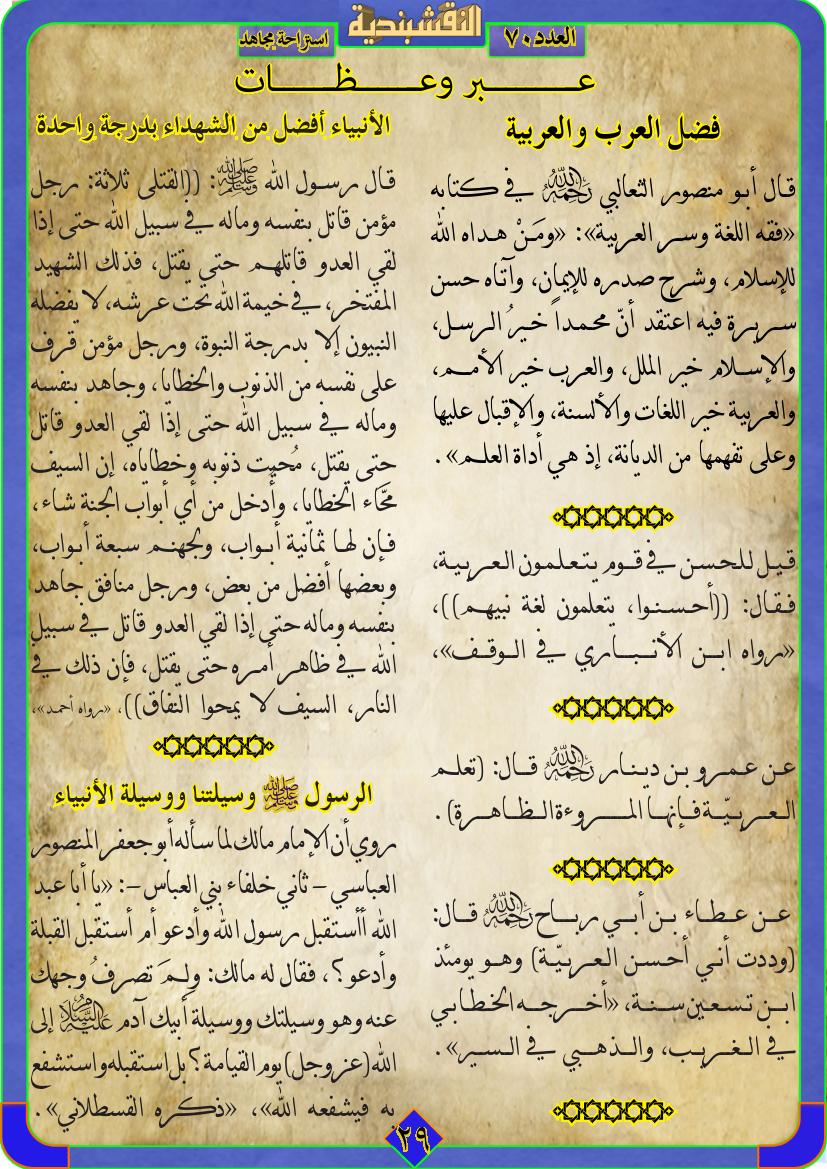 العدد ٧٠
النقشبندية
استراحة مجاهد
عـــبر وعـــظـــات
فضل العرب والعربية
قال أبو منصور الثعالبي رحمه الله في كتابه
«فقه اللغة وسر العربية»: «ومَنْ هداه الله
للإسلام، وشرح صدره للإيمان، وآتاه حسن
سريرة فيه اعتقد أنّ محمداً خيرُ الرسل،
والإسلام خير الملل، والعرب خير الأمم،
والعربية خير اللغات والألسنة، والإقبال عليها
وعلى تفهمها من الديانة، إذ هي أداة العلم».
قيل للحسن في قوم يتعلمون العربية،
فقال: ((أحسنوا، يتعلمون لغة نبيهم))،
«رواه ابن الأنباري في الوقف»،
عن عمرو بن دينار رحمه الله قال: (تعلم
العربيّة فإنها المروءة الظاهرة).
عن عطاء بن أبي رباح رحمه الله قال:
(وددت أني أحسن العربيّة) وهو يومئذ
ابن تسعين سنة، «أخرجه الخطابي
في الغريب، والذهبي في السير».
الأنبياء أفضل من الشهداء بدرجة واحدة
قال رسول الله ﷺ: ((القتلى ثلاثة: رجل
مؤمن قاتل بنفسه وماله في سبيل الله حتى إذا
لقي العدو قاتلهم حتى يقتل، فذلك الشهيد
المفتخر، في خيمة الله تحت عرشه، لا يفضله
النبيون إلا بدرجة النبوة، ورجل مؤمن قرف
على نفسه من الذنوب والخطايا، وجاهد بنفسه
وماله في سبيل الله حتى إذا لقي العدو قاتل
حتى يقتل، مُحيت ذنوبه وخطاياه، إن السيف
محّاء الخطايا، وأدخل من أي أبواب الجنة شاء،
فإن لها ثمانية أبواب، ولجهنم سبعة أبواب،
وبعضها أفضل من بعض، ورجل منافق جاهد
بنفسه وماله حتى إذا لقي العدو قاتل في سبيل
الله في ظاهر أمره حتى يقتل، فإن ذلك في
النار، السيف لا يمحوا النفاق))، «رواه أحمد»،
الرسول ﷺ وسيلتنا ووسيلة الأنبياء
روي أن الإمام مالك لما سأله أبو جعفر المنصور
العباسي – ثاني خلفاء بني العباس –: «يا أبا عبد
الله أأستقبل رسول الله وأدعو أم أستقبل القبلة
وأدعو؟، فقال له مالك: ولِمَ تصرفُ وجهك
عنه وهو وسيلتك ووسيلة أبيك آدم عليه السلام إلى
الله (عز وجل) يوم القيامة؟ بل استقبله واستشفع
به فيشفعه الله»، «ذكره القسطلاني».
٢٩